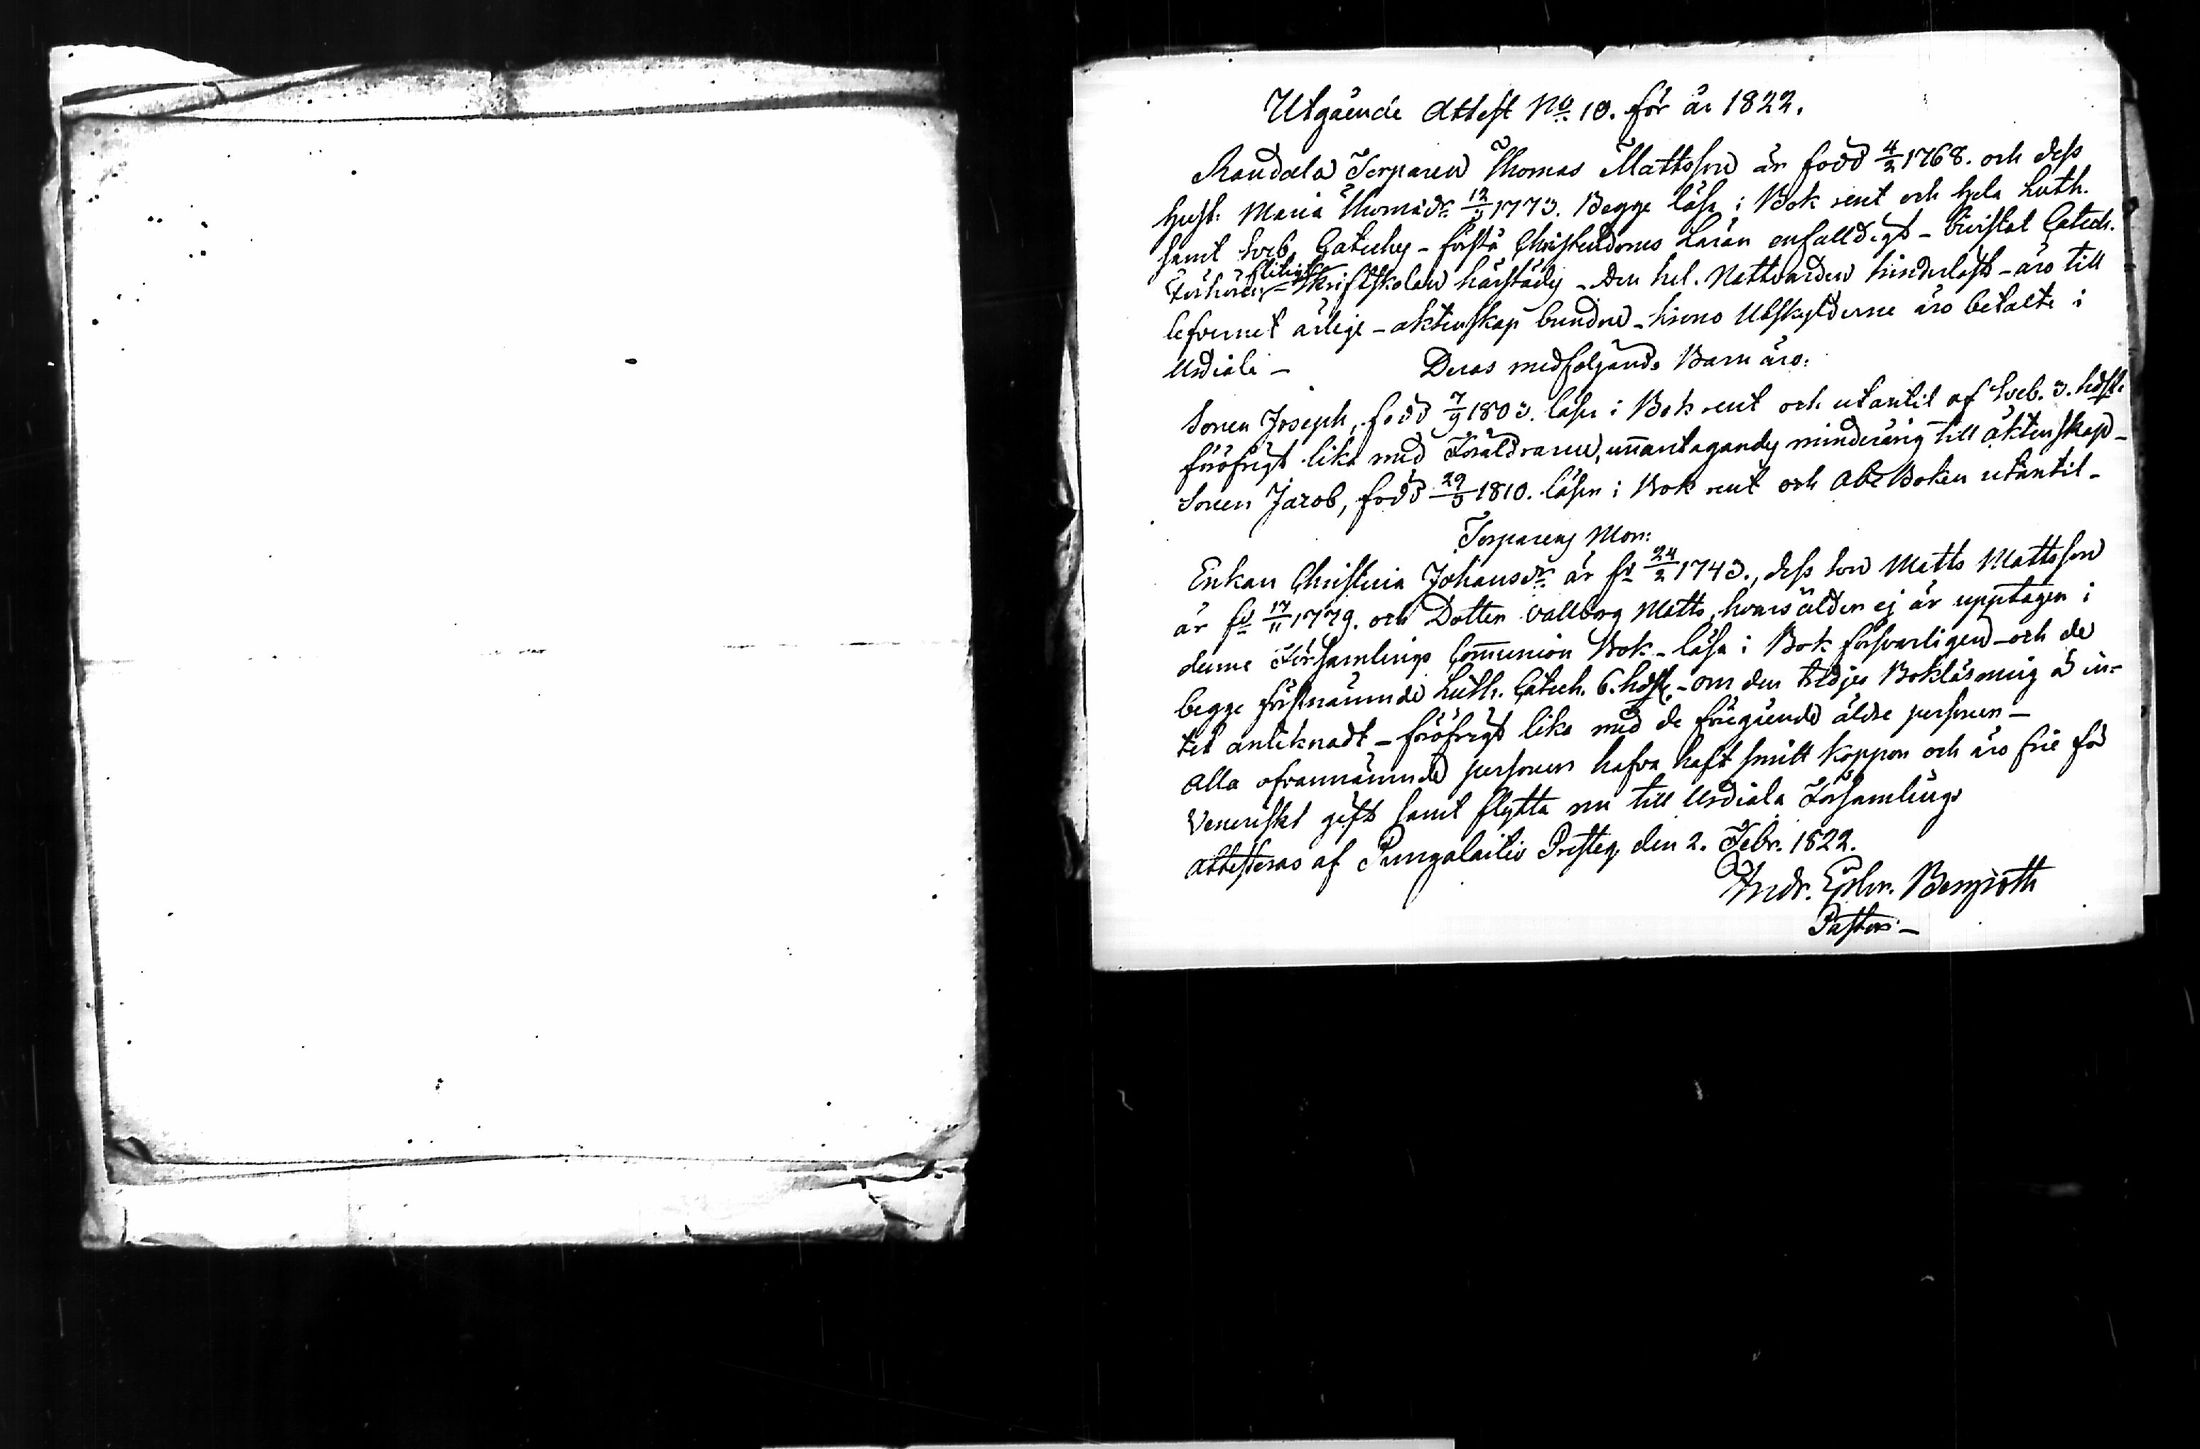 Utgående Attest No 10. för år 1822.
Raudala Torparen Thomas Mattsson är född 4/2 1768. och dess
hust: Maria Thomædr 12/3 1773. Begge läsa i Bok rent och hela Luth.
samt Sveb. Catechs – förstå Christendoms Läran enfalldigt – bivistat Catech.
Förhören flitigt Skriftskolan härstädes – den hel. Nattvarden hinderlöst – äro till
lefvernet ärlige – äktenskap bundne – hvars Utskylderne äro betalte i
Urdiala – Deras medföljande Barn äro:
Sonen Joseph, född 7/9 1803. läser i Bok rent och utantil af Sveb. 3. hdst.
föröfrigt lika med Föräldrarne, undantagandes minderårig till äktenskap –
Sonen Jacob, född 29/3 1810. läser i Bok rent och Abc Boken utantil –
Torparens Mor:
Enkan Christina Johansdr är fd 24/2 1743., dess Son Matts Mattsson
är fd 17/11 1779. och Dotter Vallborg Matts, hvars ålder ej är upptagen i
denne Församlings Communion Bok – läsa i Bok försvarligen – och de
begge förstnämnde Luth. Catech. 6. hdst. – om den tredjes Bokläsning är in-
tet anteknadt – föröfrigt lika med de föregående äldre personer –
Alla ofvannämnde personer hafva haft smitt koppor och äro frie för
Veneriskt gift samt flytta nu till Urdiala Församling,
attesteras af Pungalaitio Presteg. den 2. Febr. 1822.
Andr. Ephr. Bergroth
Pastor –